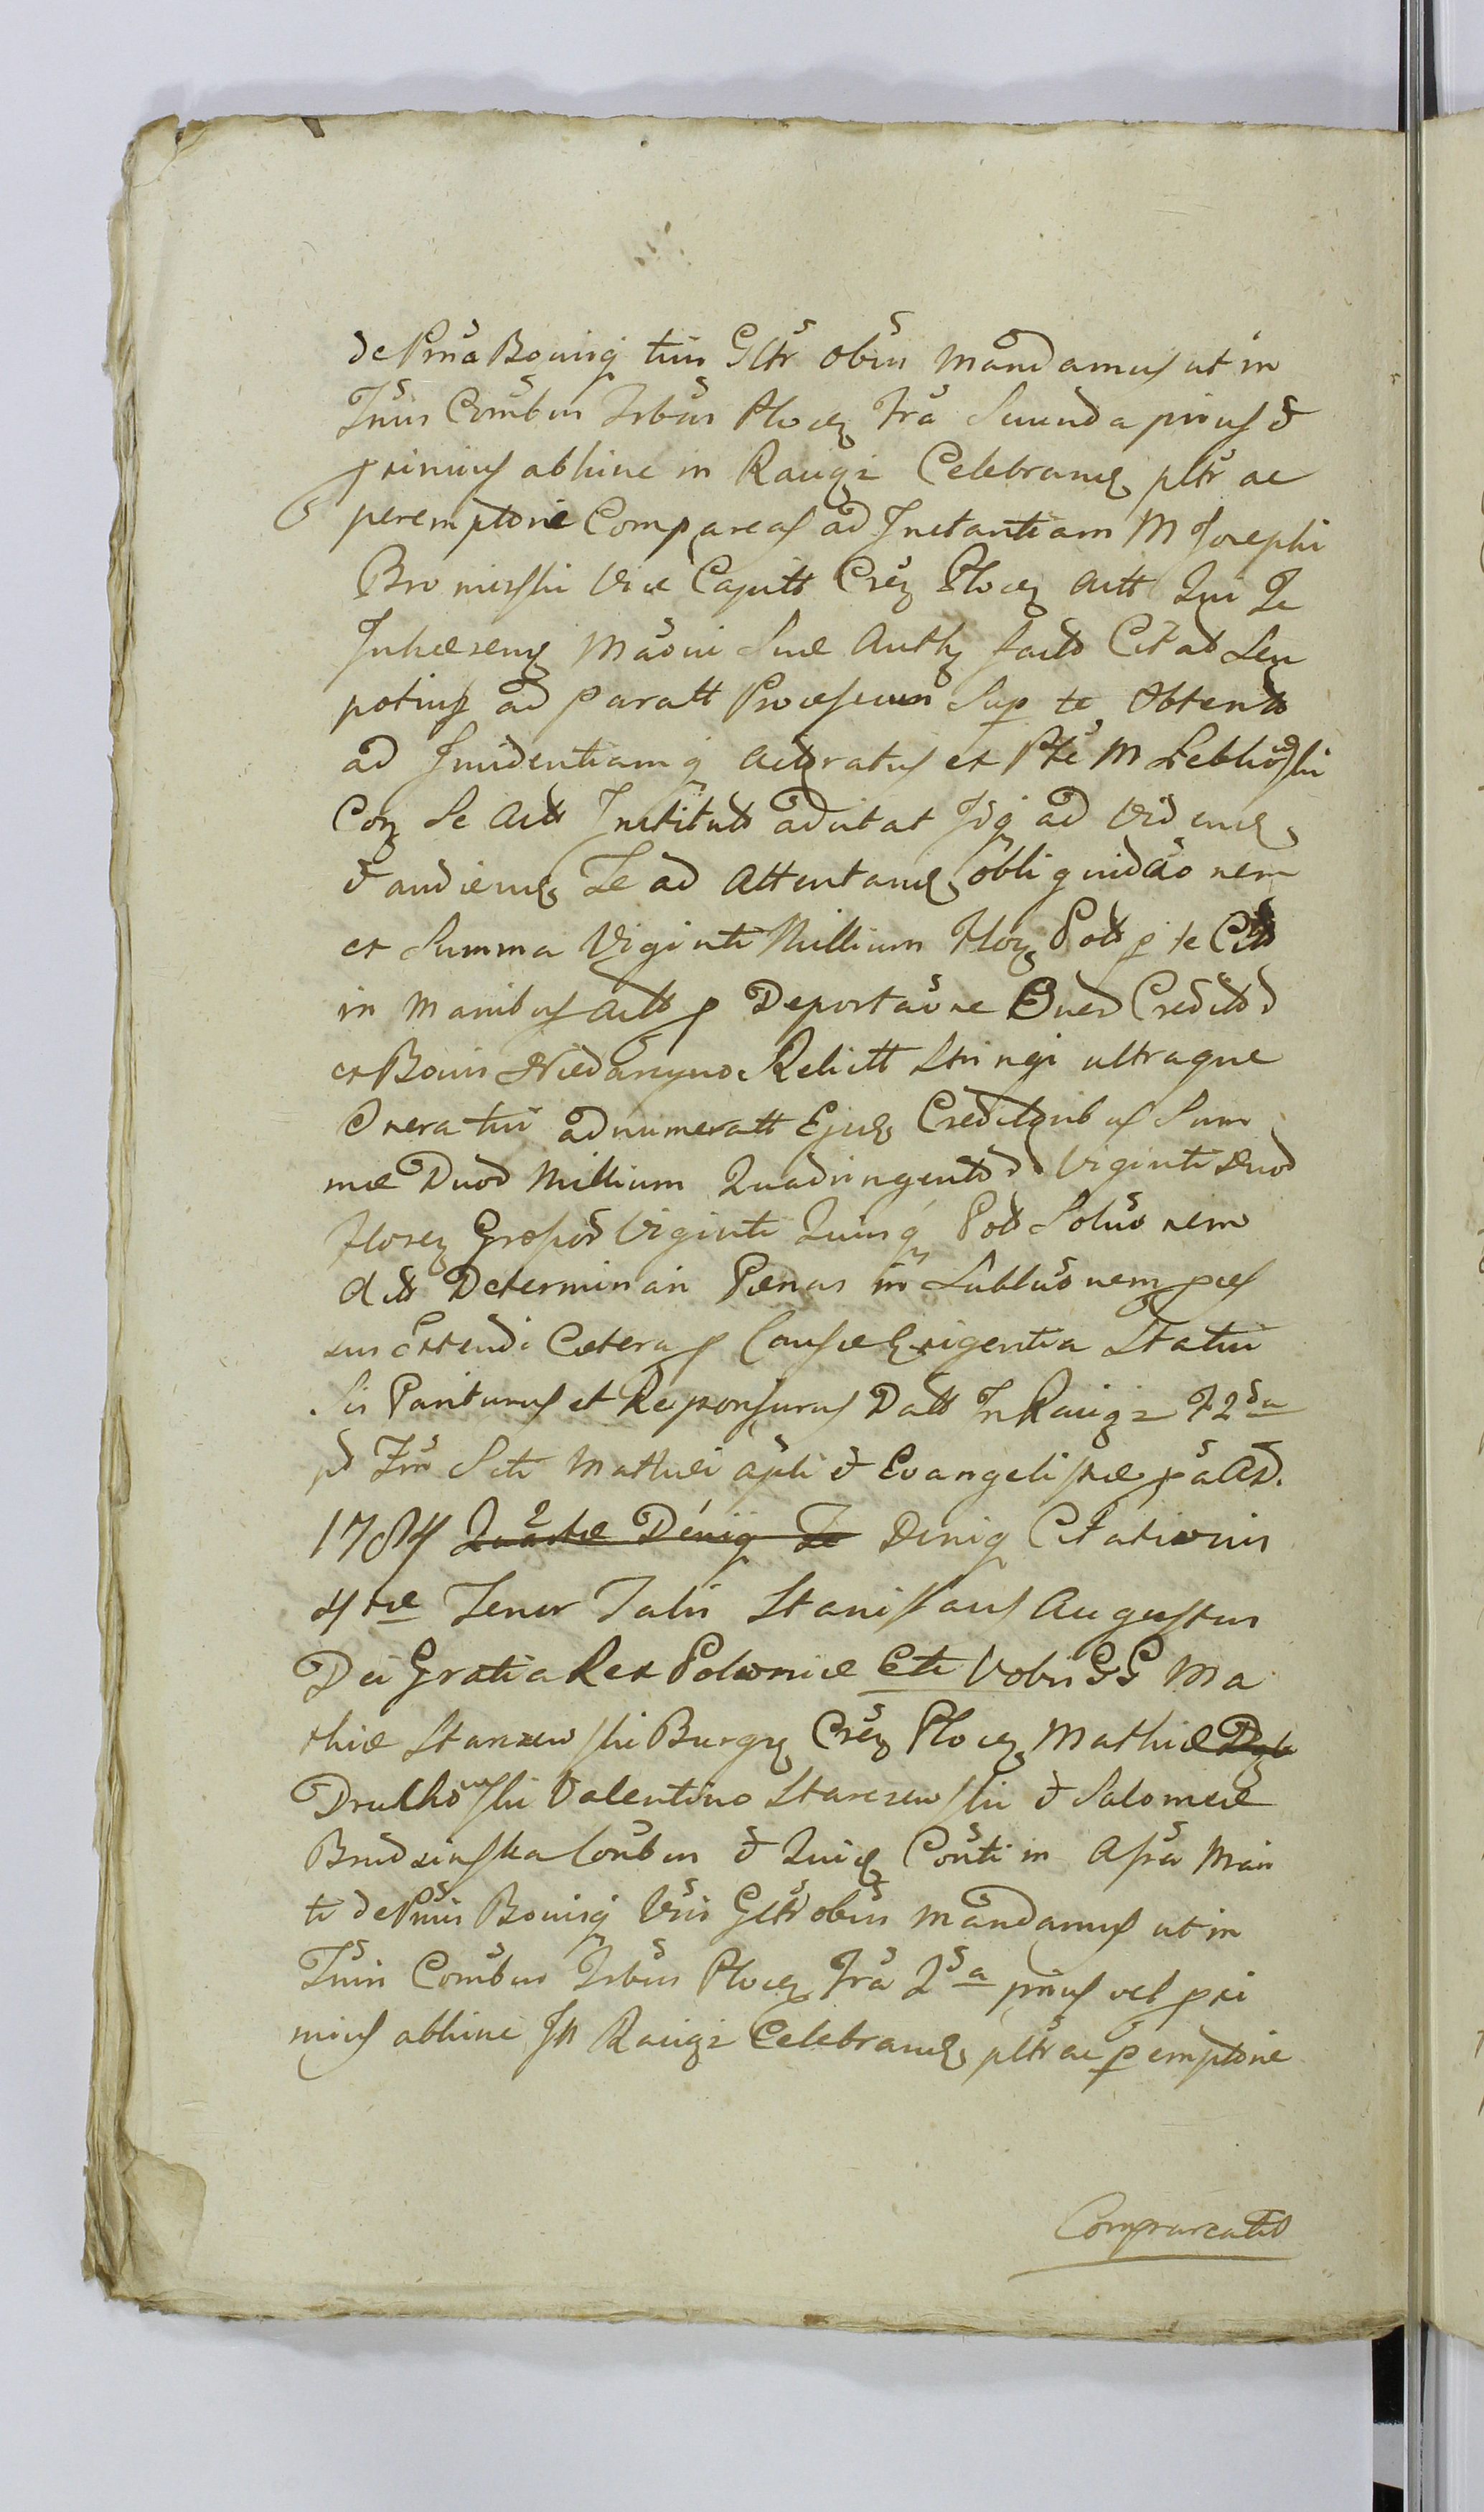 de Pnia Bonisq tuis Gltr obus Mandamus ut in
Tnis Comibus Irbus Plocen Fra Secunda prius &
proximius abhinc in Raciąz Celebran pltr ac
peremptorie Compareas ad Instantiam M Josephi
Bromirski Vice Capitt Cren Plocen Actt Qui Te
Inhaeren Maoni Suae Auth facto Citat Seu
potius ad paratt Processum Sup te Obtent
ad Incidentiamq Actoratus ex Pte M
Con Se Actt Institut adcitat Idq ad Viden
& audien Te ad Attentan obliquidaonem
ex Summa Viginti Millium Flor Pol p te Citt
in Manibus Actt p Deportaone Oner Creditor
ex Bonis Niedarzyno Relictt Stringi ultraque
Onera tui adnumeratt Ejusd Creditoribus Sum
mae Duor Millium Quadringentor Viginti Duor
Floren Grossor Viginti Quinq Pol Soluonem
Actt Determinari Paenas in Sublaonem proces
sus Extendi Caetera p Causae Exigentia Statui
Sis Pariturus et Responsurus Datt In Raciąz F 2da
pt Fm Scti Mathaei Apli & Evangelistae pa AD.
1784 Quartae Deniq Te Deniq Citationis
4tae Tenor Talis Stanislaus Augustus
Dei Gratia Rex Poloniae Etc Vobis GG Ma
thiae Starzewski Burg Cren Plocen Mathiae
Drulkowski Valentino Starczewski & Salomeae
Brudzinska Conbus & Quid Conti in Assa Mari
ti de Pniis Bonisq Vris Gltr obus Mandamus ut in
Tnis Comibus Irbus Plocen Fra 2da prius vel proxi
mius abhinc In Raciąz Celebran pltr ac pemptorie
Compareatis